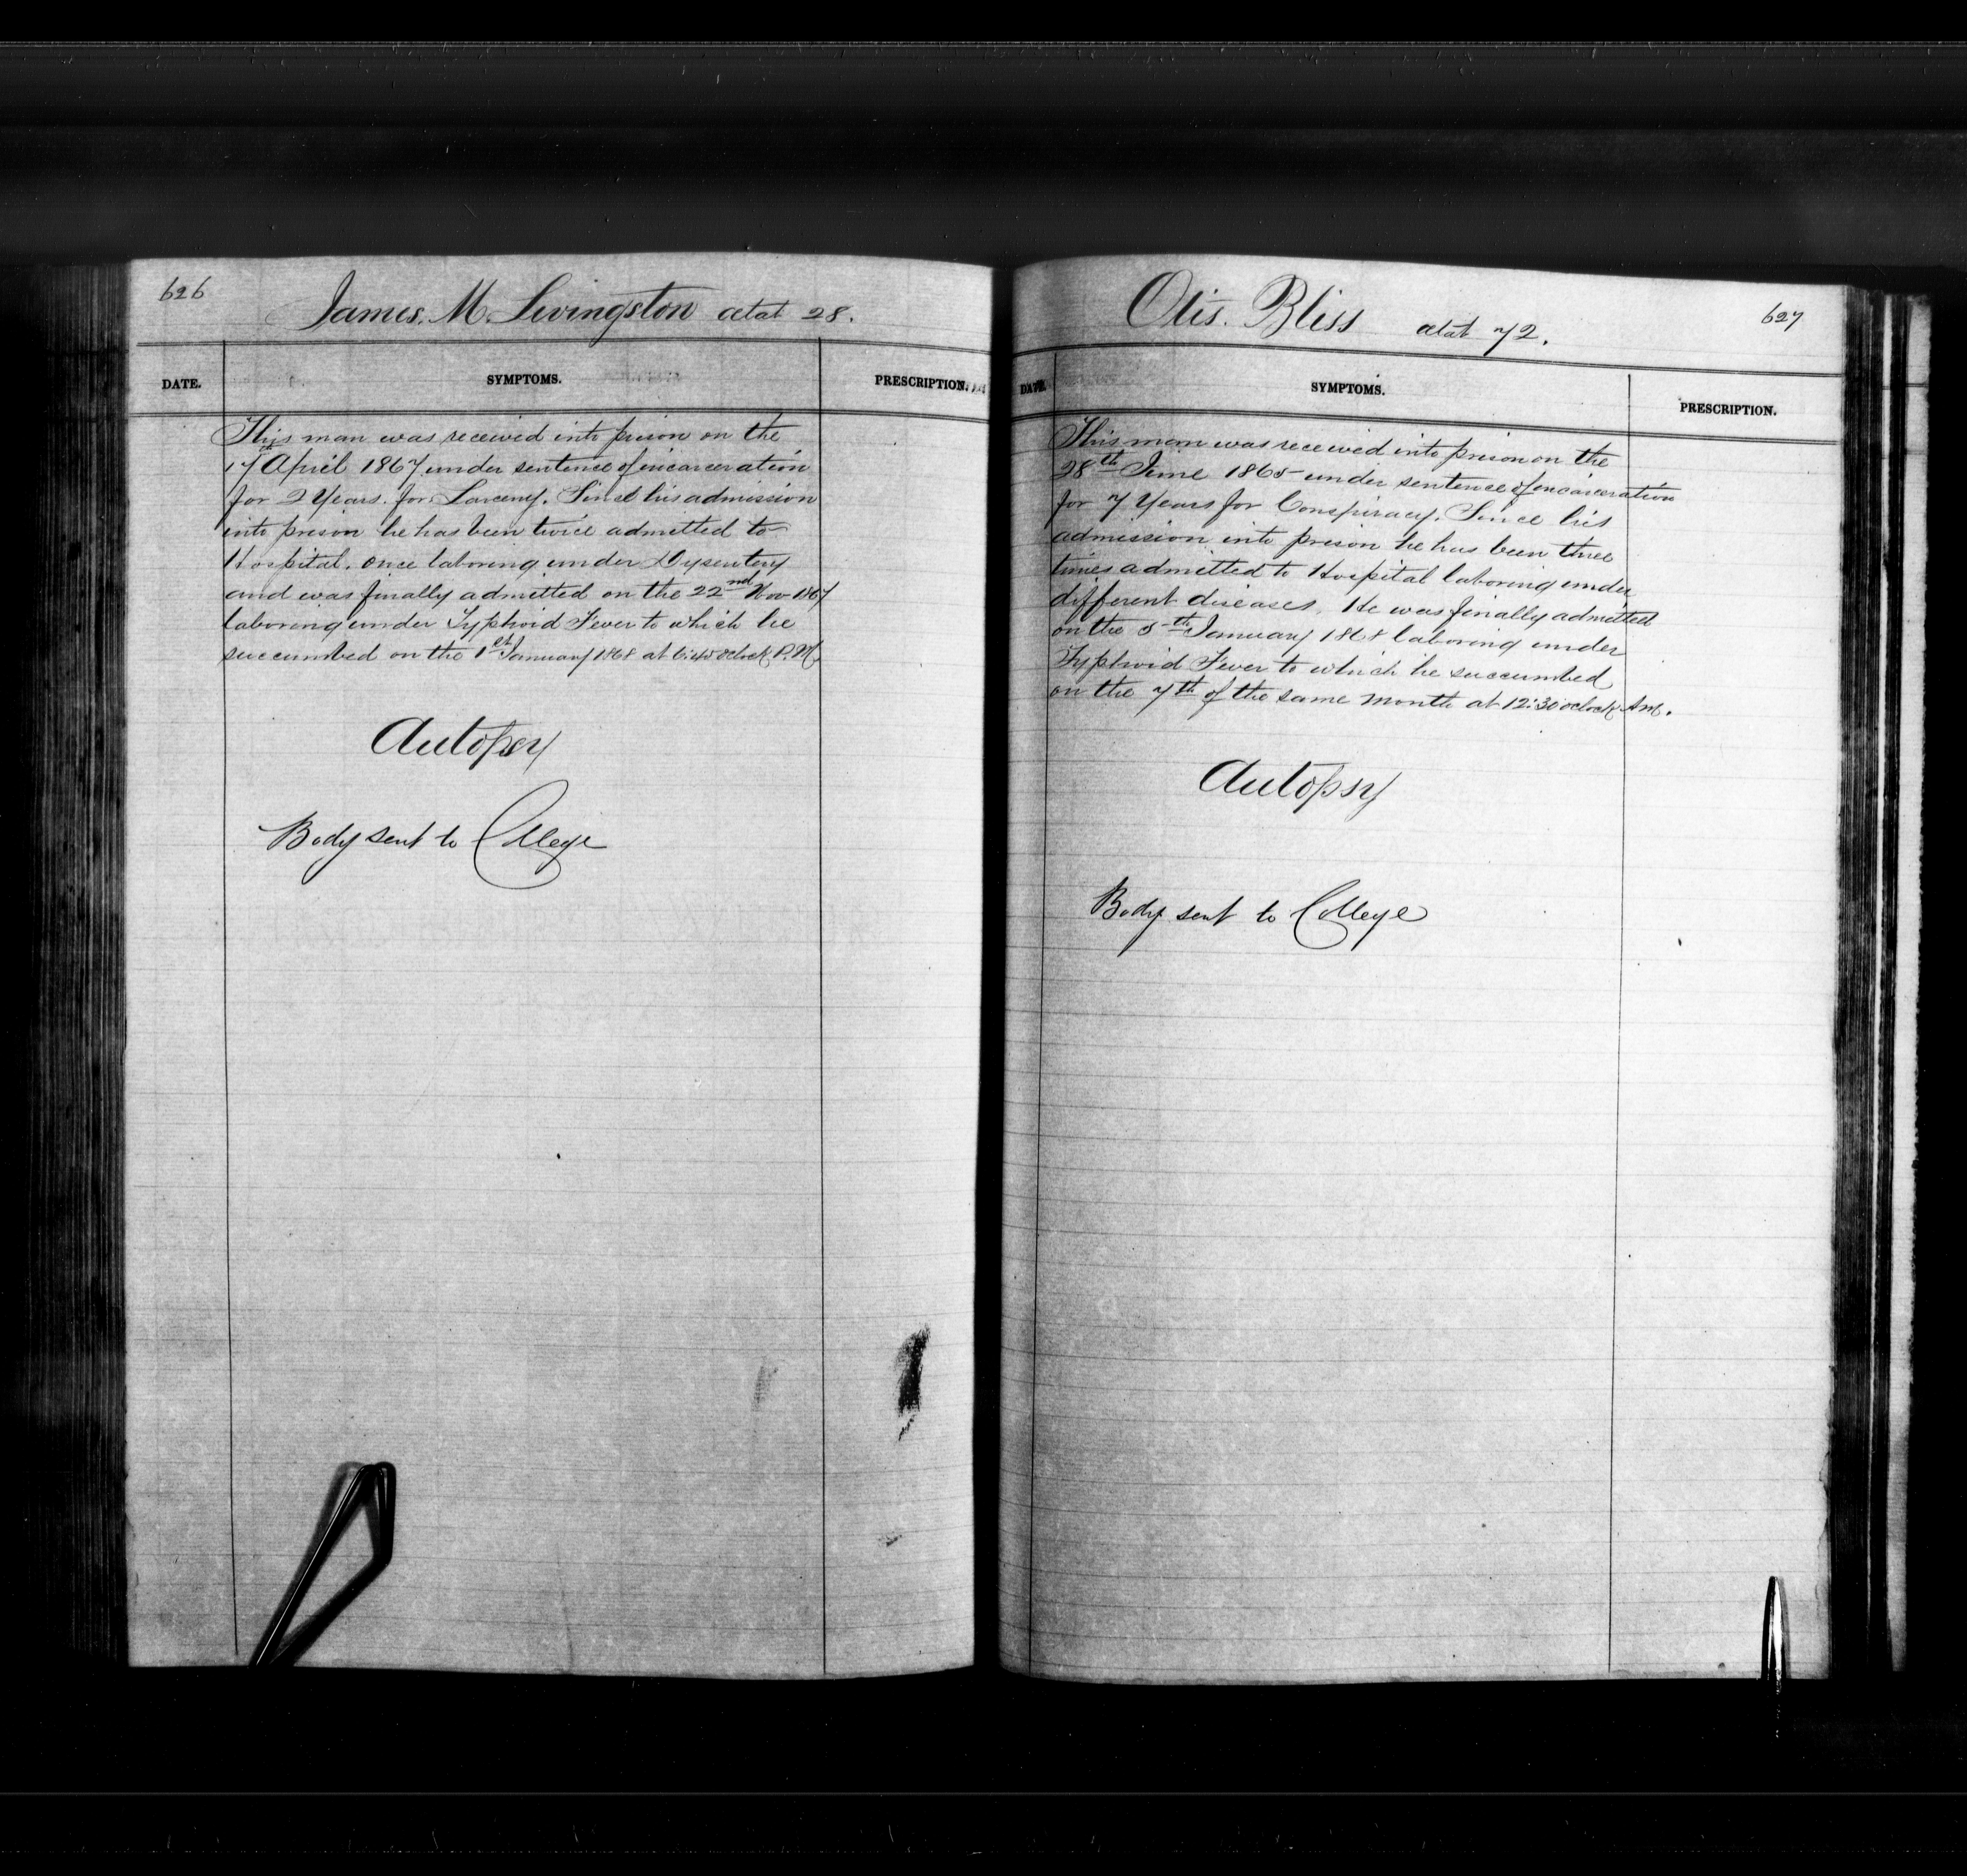 626
James. M. Livingston aetat 28.
DATE. SYMPTOMS. PRESCRIPTION.
This man was received into prison on the
17th April 1867 under sentence of incarceration
for 2 Years. for Larceny. Since his admission
into prison he has been twice admitted to
Hospital. once laboring under Dysentery
and was finally admitted on the 22nd Nov 1867
laboring under Typhoid Fever to which he
succumbed on the 1st January 1868 at 6:45 oclock P.M.
Autopsy
Body sent to College
627
Otis. Bliss aetat 72.
DATE. SYMPTOMS. PRESCRIPTION.
This man was received into prison on the
28th June 1865 under sentence of incarceration
for 7 Years for Conspiracy. Since his
admission into prison he has been three
times admitted to Hospital laboring under
different diseases. He was finally admitted
on the 5th January 1868 laboring under
Typhoid Fever to which he succumbed
on the 7th of the same month at 12:30 oclock A.M.
Autopsy
Body sent to College